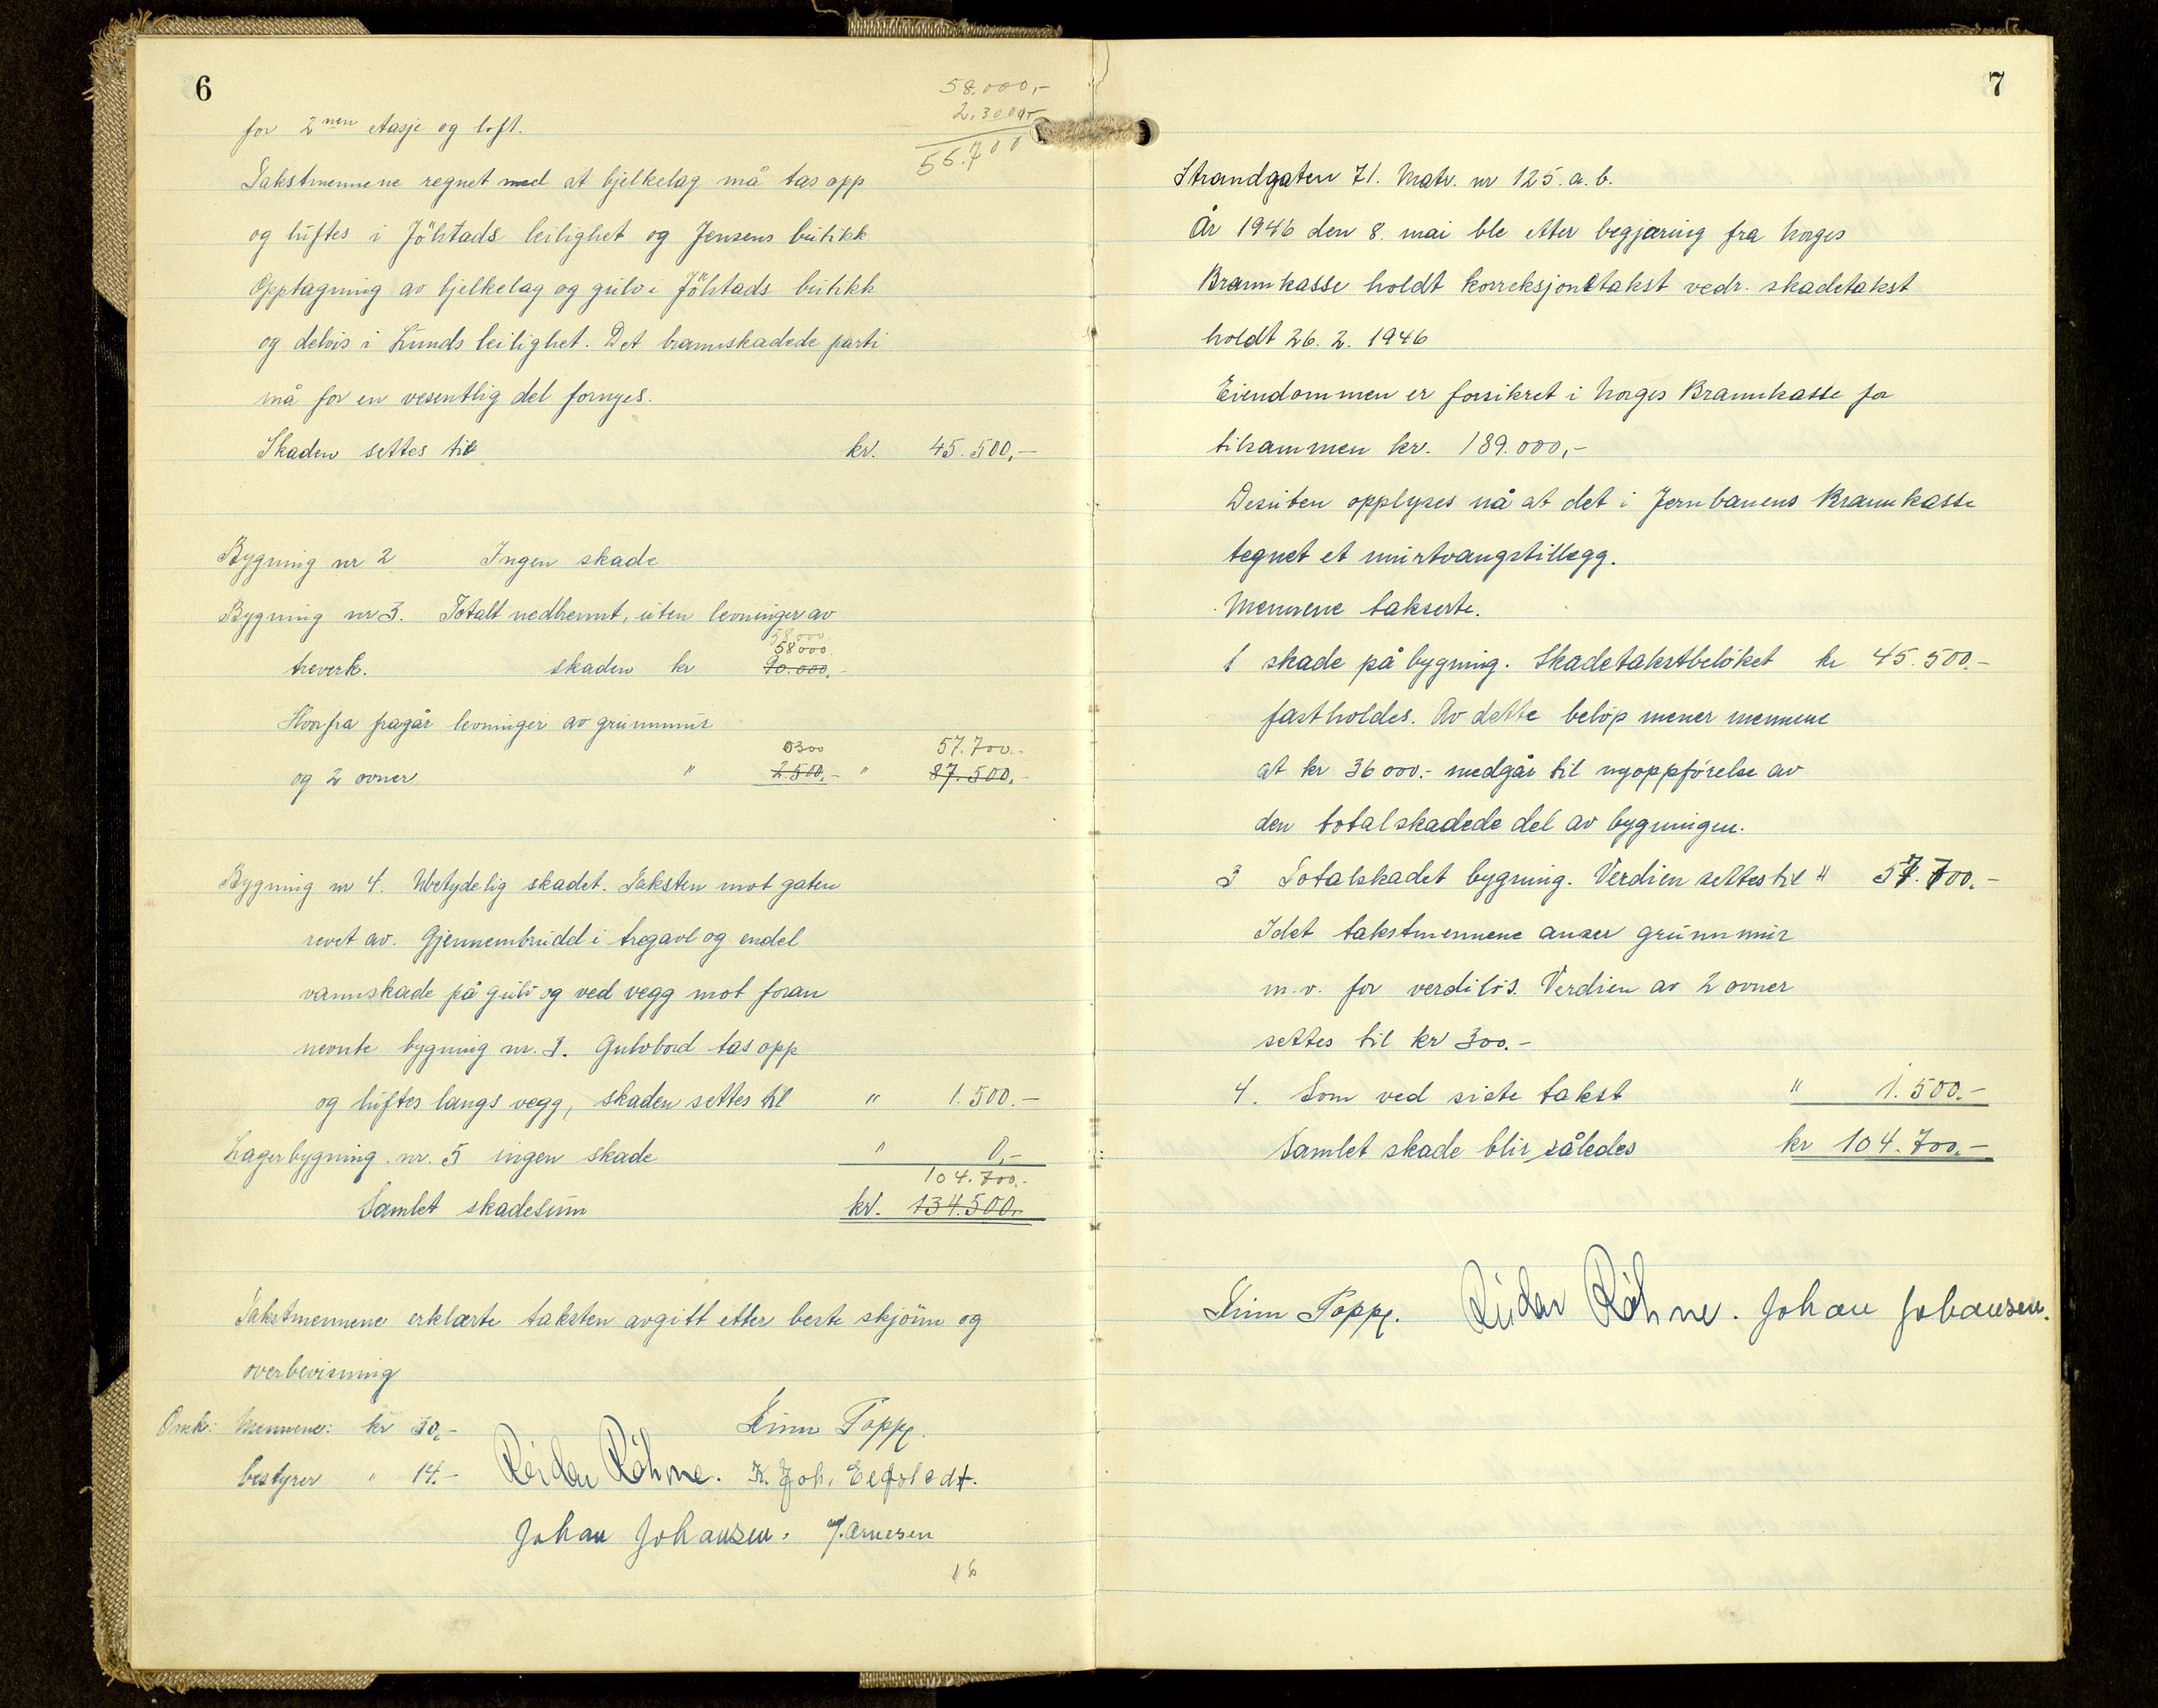 6
58.000,-
2.300,-
55.700
for 2nen etasje og loft.
Takstmennene regnet med at bjelkelag må tas opp
og luftes i Jölstads leilighet og Jensens butikk
Opptagning av bjelkelag og gulv i Jölstads butikk
og delvis i Lunds leilighet. Det brannskadede parti
må for en vesentlig del fornyes.
Skaden settes til kr. 45.500,-
Bygning nr 2 Ingen skade
Bygning nr 3. Totalt nedbrent, uten levninger av
58.000
58000.
treverk. skaden kr 90.000,-
Hvorfra fragår levninger av grunnmur
0300 57.700.-
og 2 ovner " 2.500,- " 87.500,-
Bygning nr 4. Ubetydelig skadet. Taksten mot gaten
revet av. Gjennembrudd i tregavl og endel
vannskade på gulv og ved vegg mot foran
nevnte bygning nr. 3. Gulvbord tas opp
og luftes langs vegg, skaden settes til " 1.500.-
Lagerbygning nr. 5 ingen skade " 0,-
104.700.-
Samlet skadesum kr. 134.500,-
Takstmennene erklærte taksten avgitt etter beste skjönn og
overbevisning
Omk: Mennene: kr 30,- Finn Popp.
bestyrer " 14.- Reidar Röhne. K. Joh.
Johan Johansen. Arnesen
16
7
Strandgaten 71. Matr. nr 125. a. b.
År 1946 den 8. mai ble etter begjæring fra Norges
Brannkasse holdt korreksjonstakst vedr. skadetakst
holdt 26. 2. 1946
Eiendommen er forsikret i Norges Brannkasse for
tilsammen kr. 189.000,-
Desuten opplyses nå at det i Jernbanens Brannkasse
tegnet et murtvangstillegg.
Mennene takserte.
1 skade på bygning. Skadetakstbelöket kr 45.500.-
fastholdes. Av dette belöp mener mennene
at kr 36000.- medgår til nyoppförelse av
den totalskadede del av bygningen.
3 Totalskadet bygning. Verdien settes til " 57.700.-
Idet takstmennene anser grunnmur
m.v. for verdilös. Verdien av 2 ovner
settes til kr 300.-
4. Som ved siste takst " 1.500.-
Samlet skade blir således kr 104.700.-
Finn Popp. Reidar Röhne. Johan Johansen.